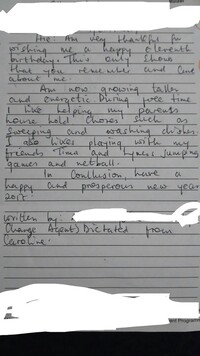 Am very thankful for
wishing me a happy eleventh
birthday. This only show
that you remember and care
about me.
Am now growing taller
and energetic. During free time
I like helping my parents
house hold chores such as
sweeping and washing dishes.
I also likes playing with my
friends and jumping
games and netball.
In Conclusion, have a
happy and prosperous new year
2017.
written by:
Change Agent) Dictated from
Caroline.